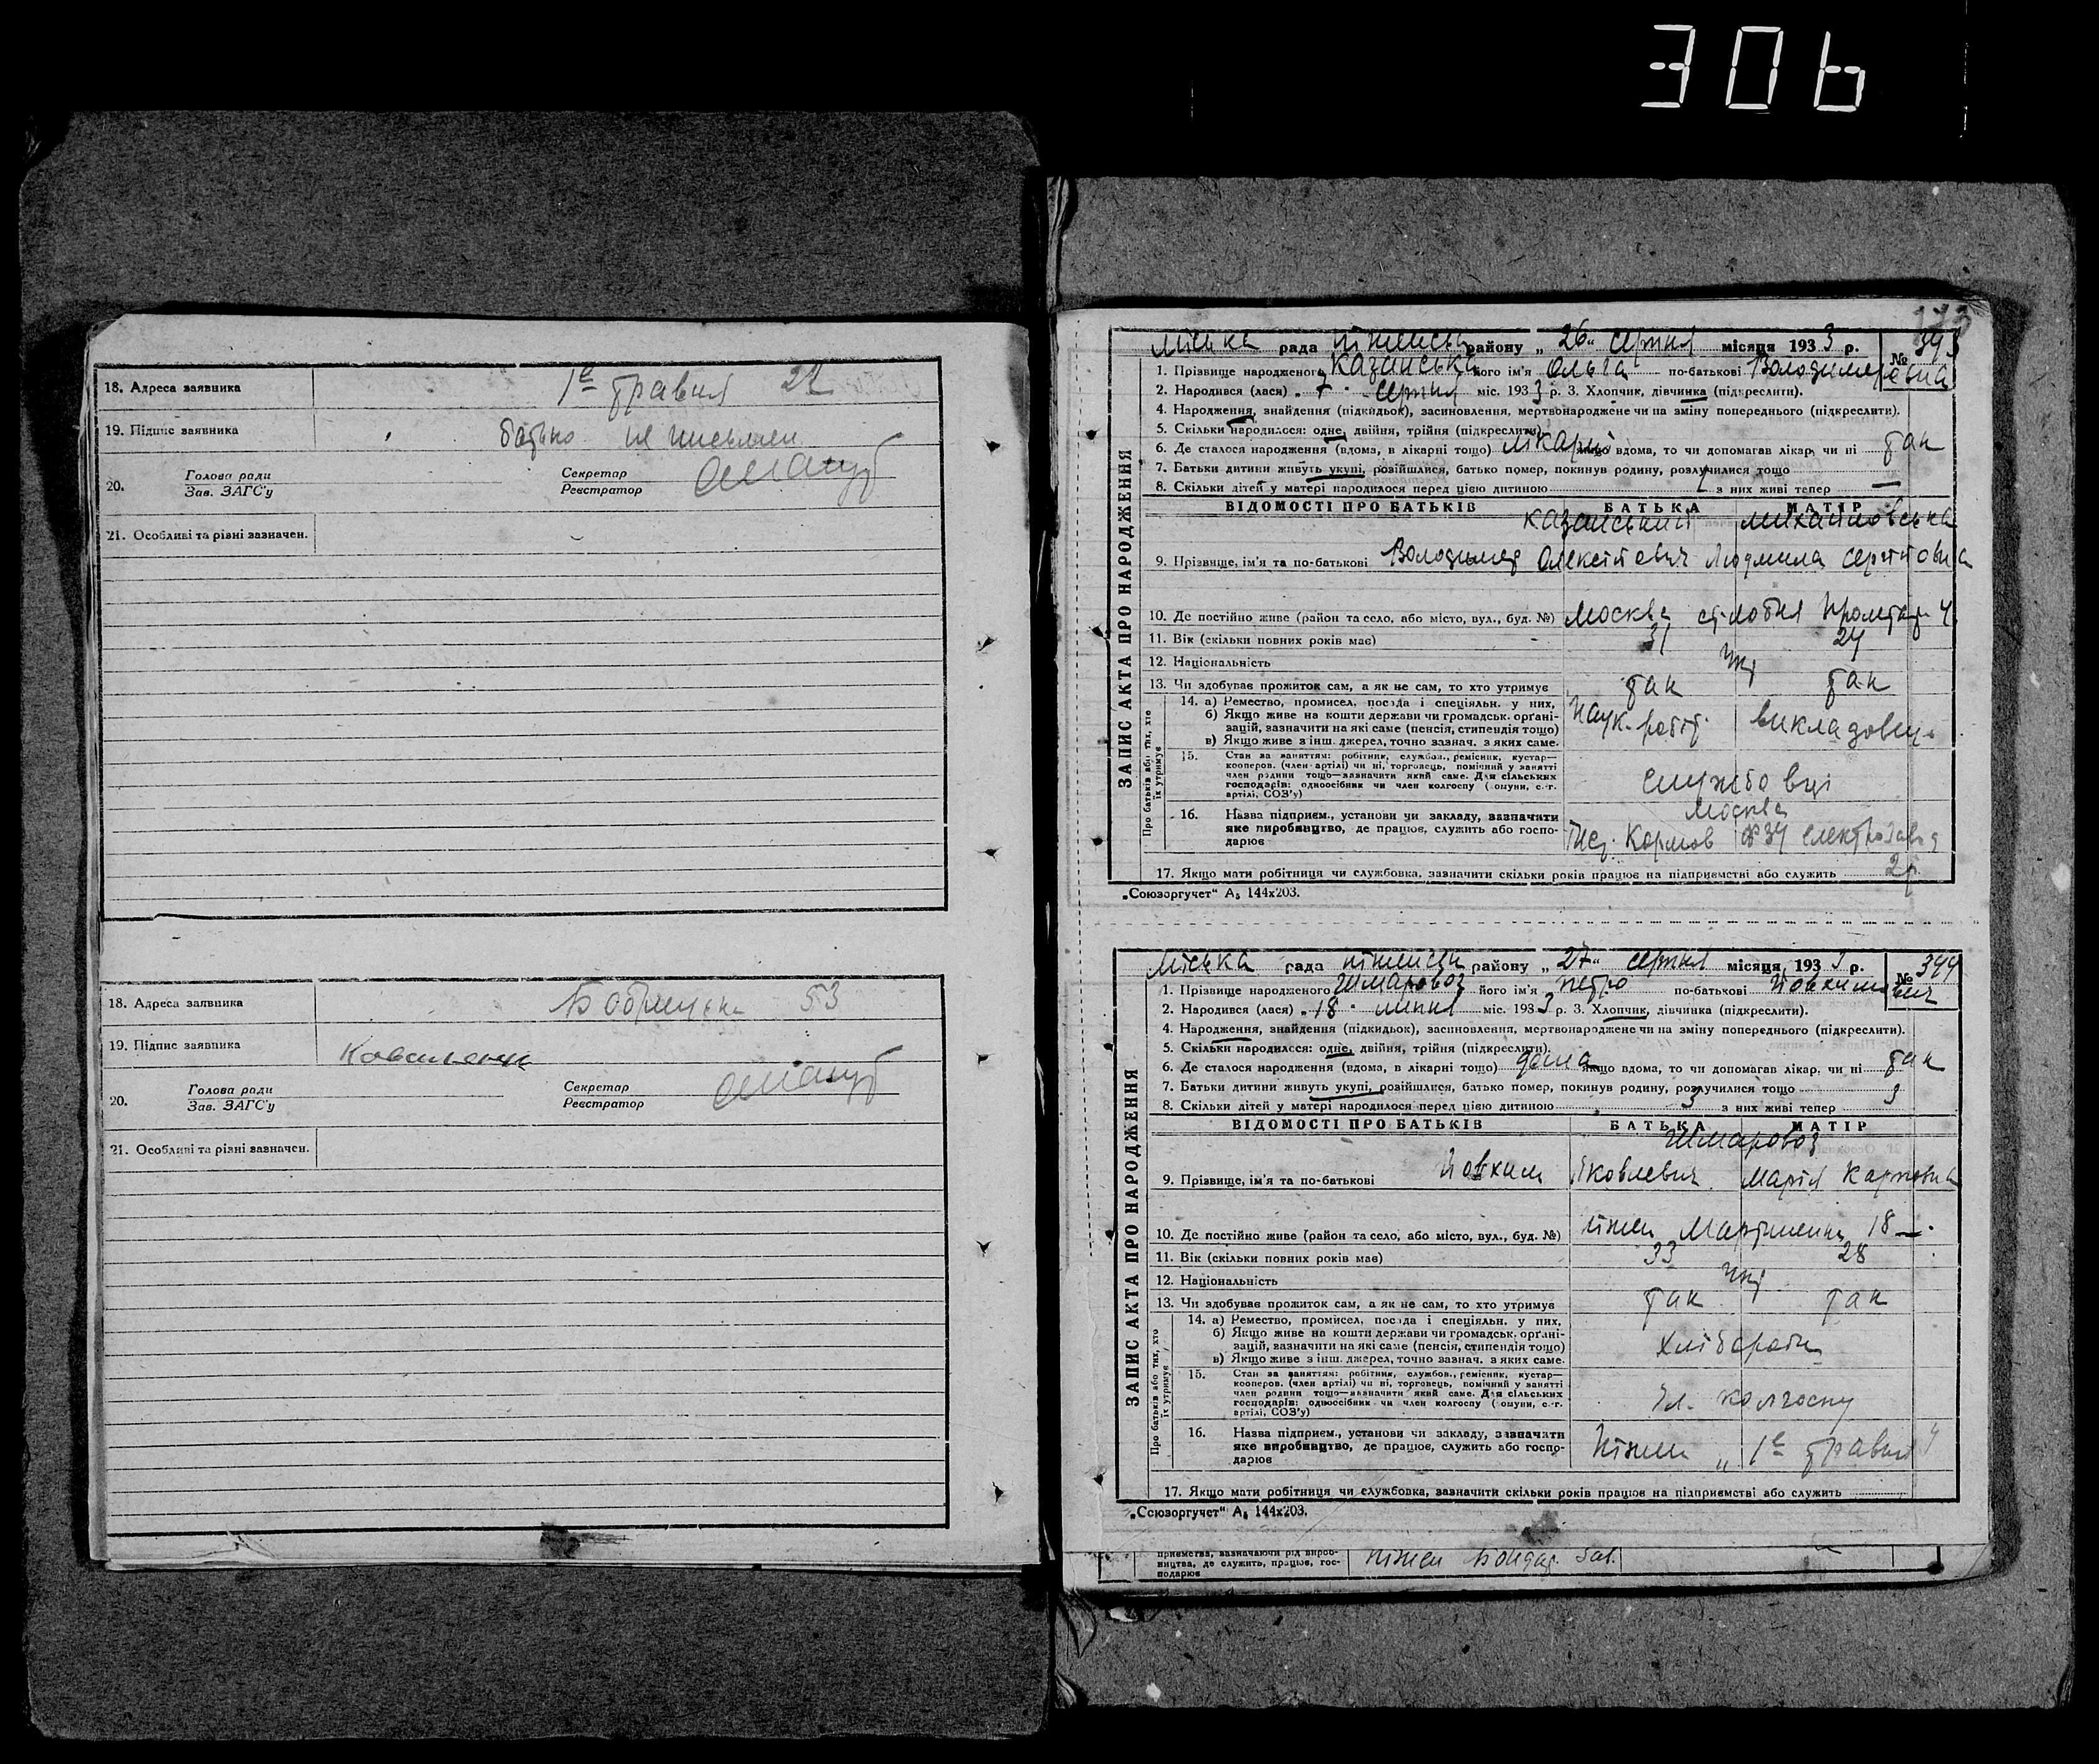 306
18. Адреса заявника 1е травня 22
19. Підпис заявника батько не письмен
20. Голова ради
Зав. ЗАГС'у
Секретар
Реєстратор
21. Особливі та різні зазначен.
18. Адреса заявника 53
19. Підпис заявника Коваленко
20. Голова ради
Зав. ЗАГС'у
Секретар
Реєстратор
21. Особливі та різні зазначен.
173
ЗАПИС АКТА ПРО НАРОДЖЕННЯ
Міська рада Ніженськ району „ 26 " серпня місяця 193 3 р. № 393
1. Прізвище народженого Казанська його ім'я Ольга по-батькові Володимировна
2. Народився (лася) „ 7 " серпня міс. 193 3 р. 3. Хлопчик, дівчинка (підкреслити).
4. Народження, знайдення (підкидьок), засиновлення, мертвонароджене чи на зміну попереднього (підкреслити).
5. Скільки народилося: одне, двійня, трійня (підкреслити).
6. Де сталося народження (вдома, в лікарні тощо) лікарні якщо вдома, то чи допомагав лікар, чи ні так
7. Батьки дитини живуть укупі, розійшлися, батько помер, покинув родину, розлучилися тощо
8. Скільки дітей у матері народилося перед цією дитиною 1 з них живі тепер —
ВІДОМОСТІ ПРО БАТЬКІВ БАТЬКА МАТІР
Казанський Михайловська
9. Прізвище, ім'я та по-батькові Володимир Олексійович Людмила Сергіїовна
10. Де постійно живе (район та село, або місто, вул., буд. №) Москва
11. Вік (скільки повних років має) 31 24
12. Національність укр
13. Чи здобував прожиток сам, а як не сам, то хто утримує так так
Про батьків або тих, хто їх утримує
14. а) Ремество, промисел, посада і спеціяльн. у них,
б) Якщо живе на кошти держави чи громадськ. органі-
зацій, зазначити на які саме (пенсія, стипендія тощо)
в) Якщо живе з інш. джерел, точно зазнач. з яких саме.
Наук. робіт. викладовець
15. Стан за заняттям: робітник, службов., ремісник, кустар—
кооперов. (член артілі) чи ні, торговець, помічний у занятті
член родини тощо—зазначити який саме. Для сільських
господарів: одноосібник чи член колгоспу (комуни, с.-г.
артілі, СОЗ'у)
службовці
16. Назва підприєм., установи чи закладу, зазначити
яке виробництво, де працює, служить або госпо-
дарює
Москва
Інст. Кормов ФЗУ Електрозавод
17. Якщо мати робітниця чи службовка, зазначити скільки років працює на підприємстві або служить 2 р.
„Союзоргучет" А₅ 144х203.
ЗАПИС АКТА ПРО НАРОДЖЕННЯ
Міська рада Ніженськ району „ 27 " серпня місяця 193 3 р. № 394
1. Прізвище народженого Шмаровоз його ім'я Петро по-батькові Йовхимович
2. Народився (лася) „ 18 " липня міс. 193 3 р. 3. Хлопчик, дівчинка (підкреслити).
4. Народження, знайдення (підкидьок), засиновлення, мертвонароджене чи на зміну попереднього (підкреслити).
5. Скільки народилося: одне, двійня, трійня (підкреслити).
6. Де сталося народження (вдома, в лікарні тощо) дома якщо вдома, то чи допомагав лікар, чи ні так
7. Батьки дитини живуть укупі, розійшлися, батько помер, покинув родину, розлучилися тощо
8. Скільки дітей у матері народилося перед цією дитиною 3 з них живі тепер 3
ВІДОМОСТІ ПРО БАТЬКІВ БАТЬКА МАТІР
Шмаровоз
9. Прізвище, ім'я та по-батькові Йовхим Яковлевич Марія Карповна
10. Де постійно живе (район та село, або місто, вул., буд. №) Ніжен 18
11. Вік (скільки повних років має) 33 28
12. Національність укр
13. Чи здобував прожиток сам, а як не сам, то хто утримує так так
Про батьків або тих, хто їх утримує
14. а) Ремество, промисел, посада і спеціяльн. у них,
б) Якщо живе на кошти держави чи громадськ. органі-
зацій, зазначити на які саме (пенсія, стипендія тощо)
в) Якщо живе з інш. джерел, точно зазнач. з яких саме.
хлібороби
15. Стан за заняттям: робітник, службов., ремісник, кустар—
кооперов. (член артілі) чи ні, торговець, помічний у занятті
член родини тощо—зазначити який саме. Для сільських
господарів: одноосібник чи член колгоспу (комуни, с.-г.
артілі, СОЗ'у)
чл. колгоспу
16. Назва підприєм., установи чи закладу, зазначити
яке виробництво, де працює, служить або госпо-
дарює
Ніжен „1е травня"
17. Якщо мати робітниця чи службовка, зазначити скільки років працює на підприємстві або служить
„Союзоргучет" А₅ 144х203.
приємства, зазначаючи рід вироб-
ництва, де служить, працює, гос-
подарює
Ніжен